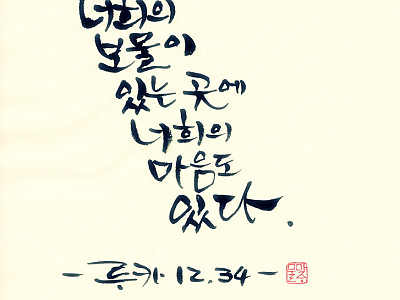 너희의
보물이
있는 곳에
너희의
마음도
있다.
- 루카 12.34 -